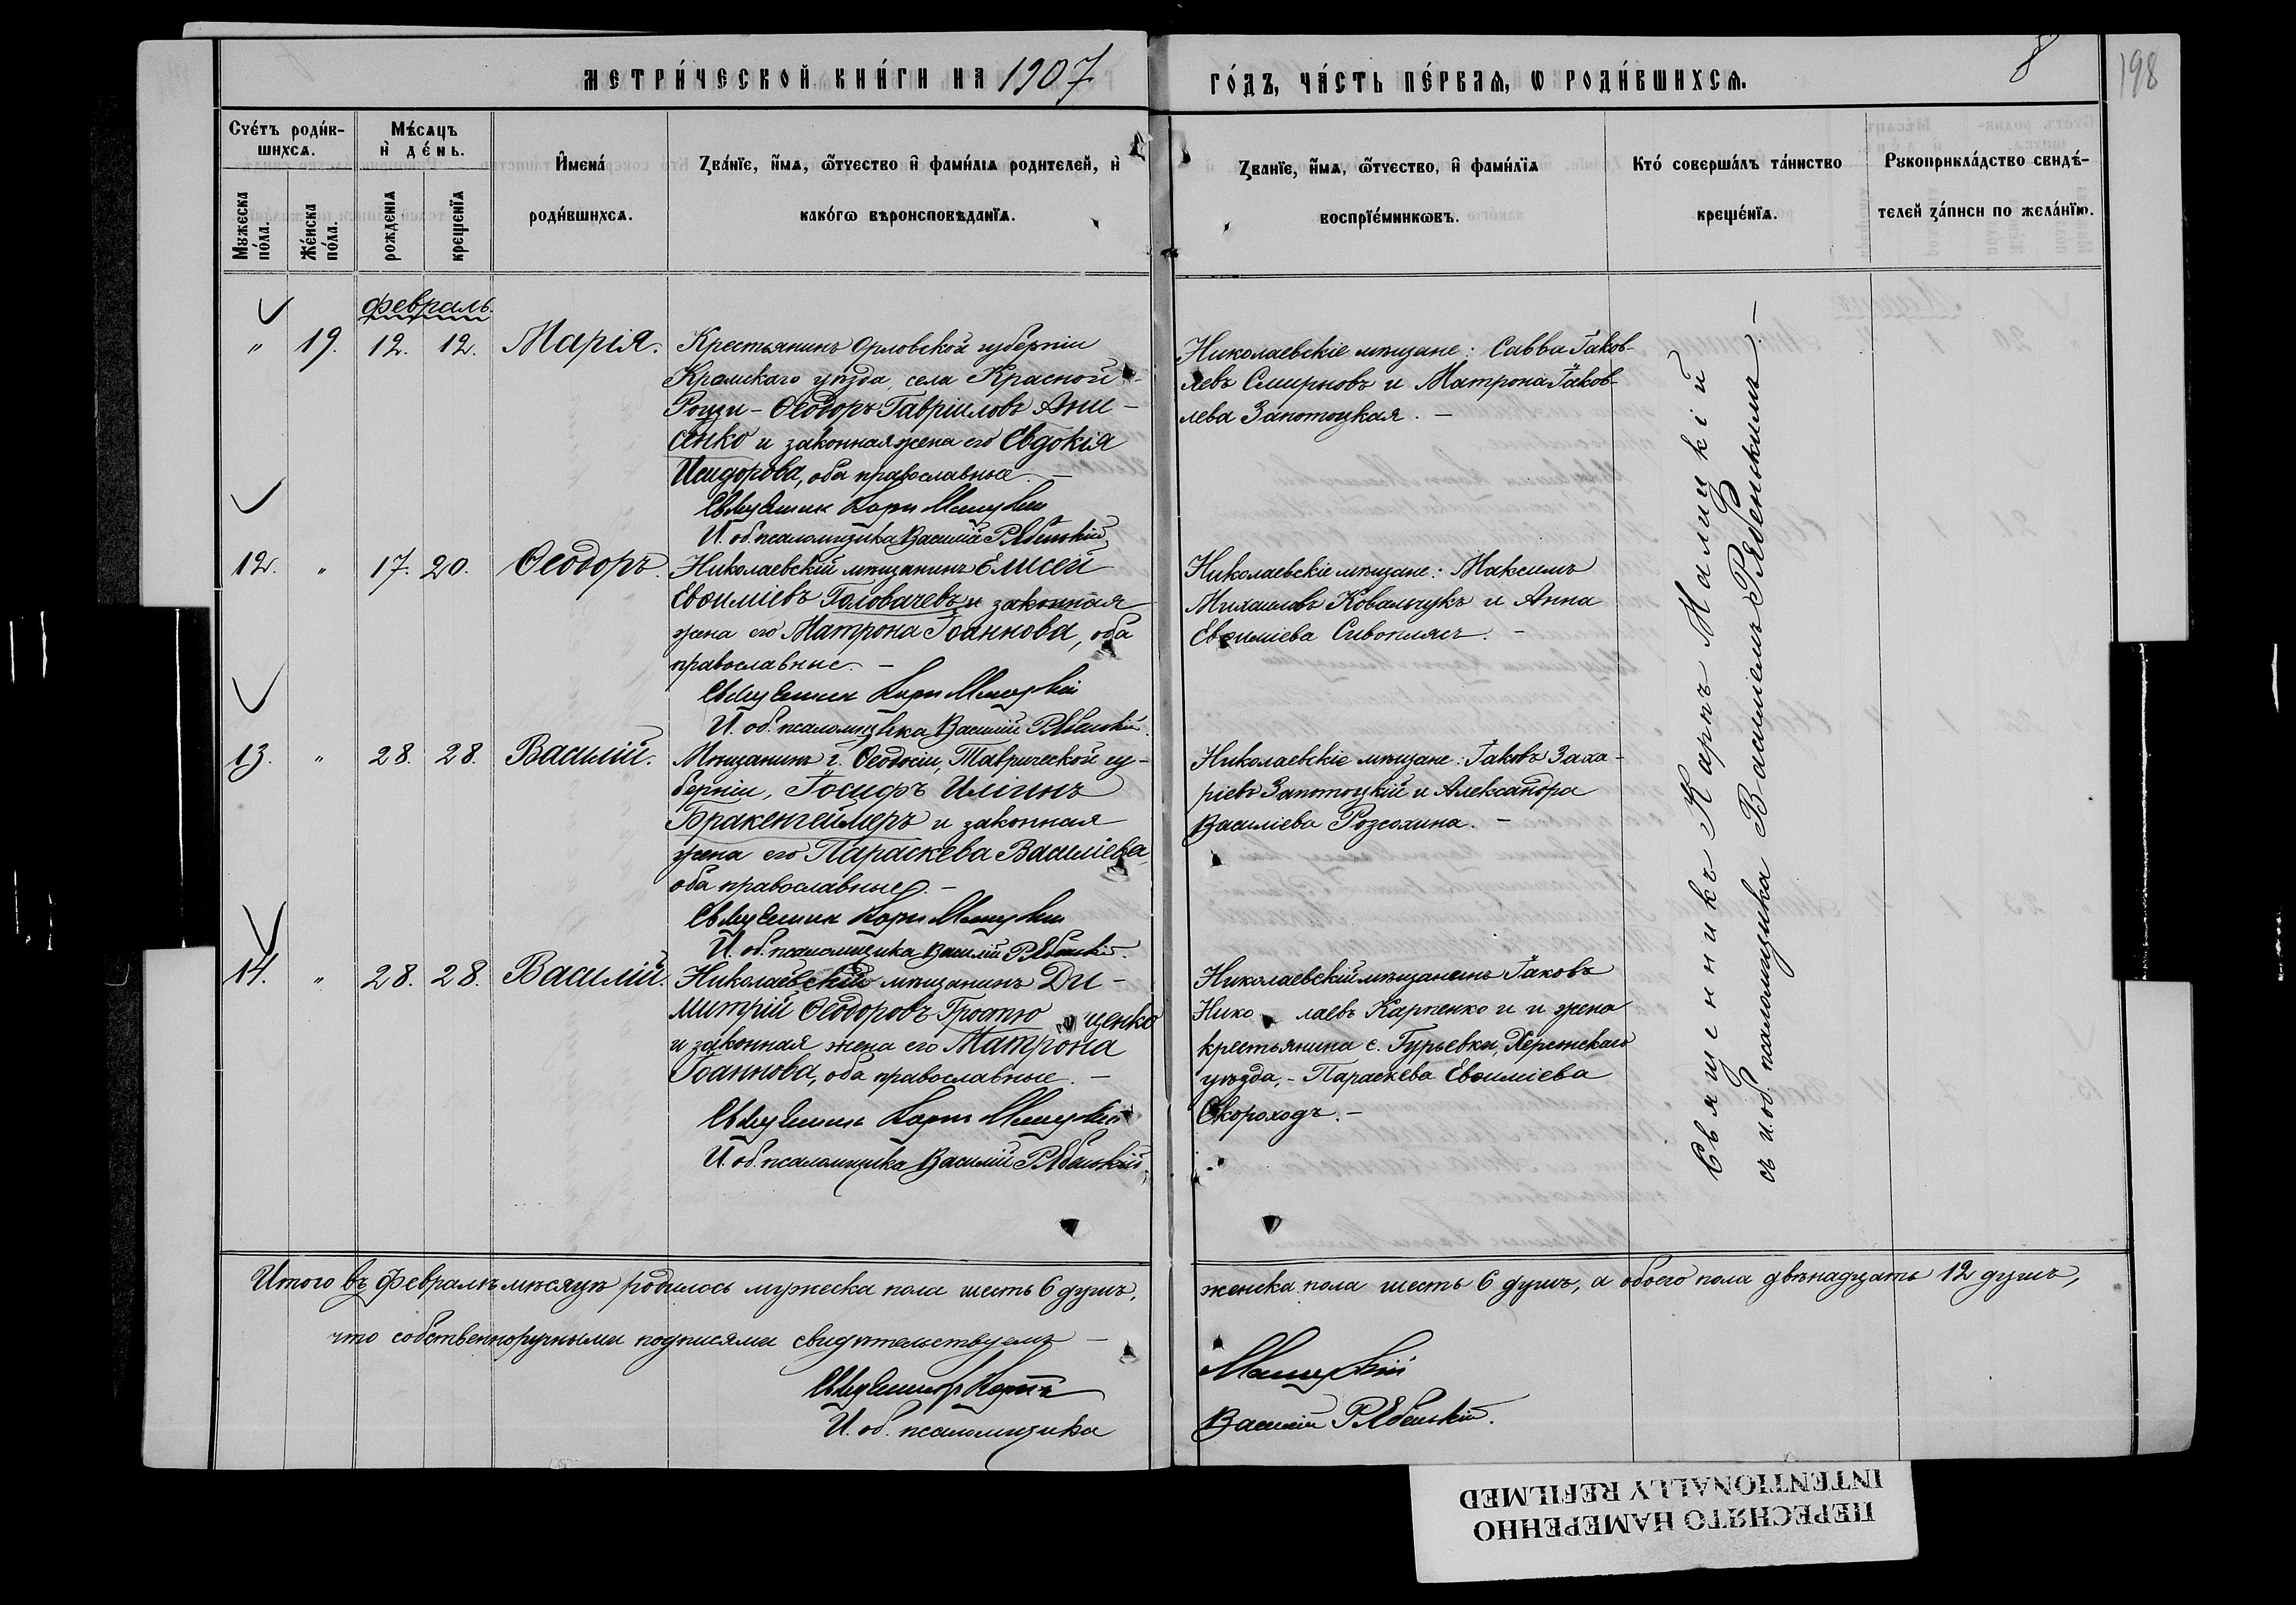 МЕТРИ́ЧЕСКОЙ КНИ́ГИ НА 1907
ГО́ДЪ, ЧА́СТЬ ПЕ́РВАѦ, Ѡ РОДИ́ВШИХСѦ.
8
198
Счéтъ роди́в-
шихсѧ.
Мѣ́сѧцъ
и де́нь.
Имена́
роди́вшихсѧ.
Зва́нїе, и́мѧ, ѻ́тчество и фами́лїѧ родителей, и
како́гѡ вѣроисповѣ́данїѧ.
Зва́нїе, и́мѧ, ѻ́тчество, и фами́лїѧ
воспрїе́мникѡвъ.
Кто́ соверша́лъ та́инство
креще́нїѧ.
Рꙋкоприкла́дство свидѣ́-
телей за́писи по жела́нїю.
Мꙋжеска
по́ла.
Же́нска
по́ла.
рожденїѧ
крещенїѧ
февраль.
" 19. 12. 12. Марія.
Крестьянинъ Орловской губерніи
Крамскаго уѣзда, села Красной
Рощи - Ѳеодоръ Гавріиловъ Ани-
сенко и законная жена его Евдокія
Исидорова, оба православные. -
Священник Карп Малицкій
И. об. псаломщика Василій Рябенькій
Николаевскіе мѣщане: Савва Іаков-
левъ Смирновъ и Матрона Іаков-
лева Запотоцкая. -
12. " 17. 20. Ѳеодоръ.
Николаевскій мѣщанинъ Елисей
Евѳиміевъ Головачевъ и законная
жена его Матрона Іоаннова, оба
православные. -
Священник Карп Малицкій
И. об. псаломщика Василій Рябенькій.
Николаевскіе мѣщане: Максимъ
Михаиловъ Ковальчукъ и Анна
Евѳиміева Сивоплясъ. -
13. " 28. 28. Василій.
Мѣщанинъ г. Ѳеодосіи, Таврической гу-
берніи, Іосифъ Иліинъ
Бракенгеймеръ и законная
жена его Параскева Василіева,
оба православные. -
Священник Карп Малицкій
И. об. псаломщика Василій Рябенькій.
Николаевскіе мѣщане: Іаковъ Заха-
ріевъ Запотоцкій и Александра
Василіева Розсохина. -
14. " 28. 28. Василій.
Николаевскій мѣщанинъ Ди-
митрій Ѳеодоровъ щенко
и законная жена его Матрона
Іоаннова, оба православные. -
Священник Карп Малицкій
И. об. псаломщика Василій Рябенькій.
Николаевскій мѣщанинъ Іаковъ
Нико лаевъ Карпенко и и жена
крестьянина с. Гурьевки, Херсонскаго
уѣзда, - Параскева Евѳиміева
Скороходъ. -
Священникъ Карпъ Малицкій
съ и. об. псаломщика Василіемъ Рябенькимъ. -
Итого въ февралѣ мѣсяцѣ родилось мужеска пола шесть 6 душъ,
женска пола шесть 6 душъ, а обоего пола двѣнадцать 12 душъ,
что собственноручными подписями свидѣтельствуемъ -
Священникъ Карпъ
Малицкій
И. об. псаломщика
Василій Рябенькій.
ПЕРЕСНЯТО НАМЕРЕННО
INTENTIONALLY REFILMED